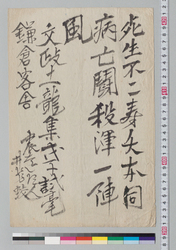 死生不二寿夭本同
病亡闘殺渾一陣
風
文政十一龍集戊子試毫
鎌倉客舎